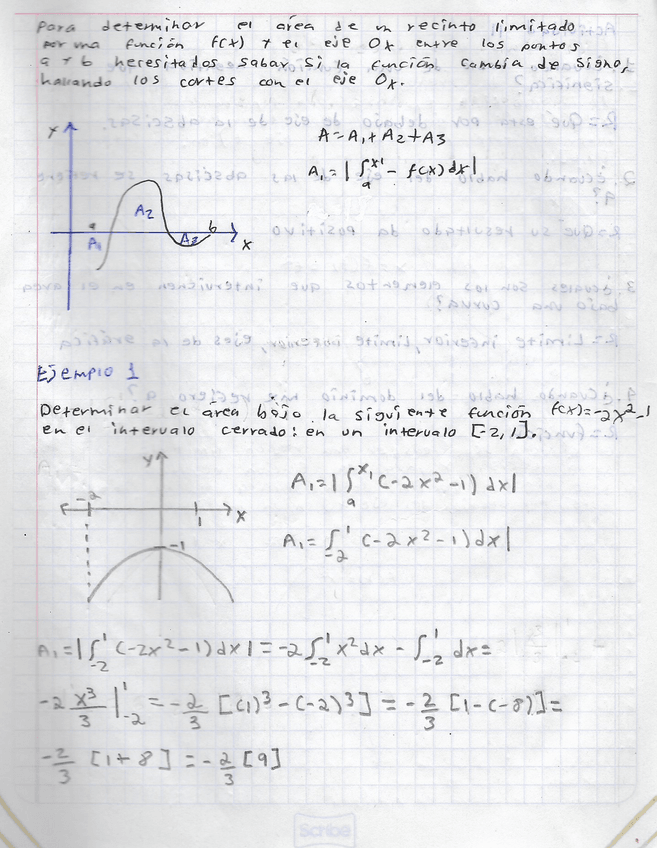 Para determinar el área de un recinto limitado
por una función f(x) y el eje Ox entre los puntos
a y b necesitados sabar si la función cambia de signo,
hallando los cortes con el eje Ox.
Y
A = A₁ + A₂ + A₃
A₁ = | ∫ₐˣ¹ - f(x) dx |
a
A₁
A₂
A₃
b
X
Ejemplo 1
Determinar el área bajo la siguiente función f(x)=-2x²-1
en el intervalo cerrado: en un intervalo [-2,1].
Y
-2
1
X
-1
A₁ = | ∫ₐˣ¹ (-2x²-1) dx |
A₁ = ∫₋₂¹ (-2x²-1) dx |
A₁ = | ∫₋₂¹ (-2x²-1) dx | = -2 ∫₋₂¹ x² dx - ∫₋₂¹ dx =
-2 x³/3 |₋₂¹ = -2/3 [(1)³-(-2)³] = -2/3 [1-(-8)] =
-2/3 [1+8] = -2/3 [9]
Scribe